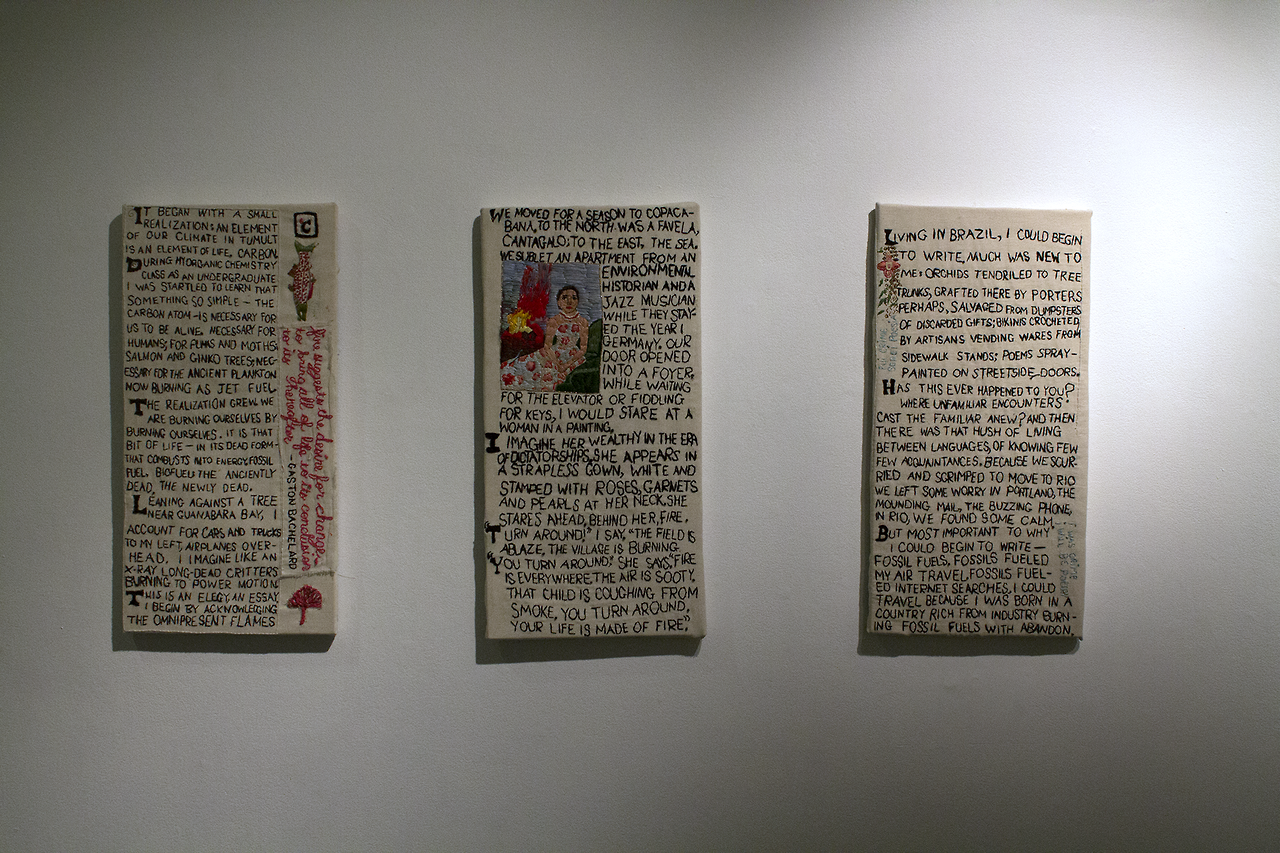 IT BEGAN WITH A SMALL
REALIZATION: AN ELEMENT
OF OUR CLIMATE IN TUMULT
IS AN ELEMENT OF LIFE, CARBON.
DURING MY ORGANIC CHEMISTRY
CLASS AS AN UNDERGRADUATE
I WAS STARTLED TO LEARN THAT
SOMETHING SO SIMPLE – THE
CARBON ATOM – IS NECESSARY FOR
US TO BE ALIVE. NECESSARY FOR
HUMANS; FOR PUMAS AND MOTHS;
SALMON AND GINKO TREES; NEC-
ESSARY FOR THE ANCIENT PLANKTON
NOW BURNING AS JET FUEL
THE REALIZATION GREW. WE
ARE BURNING OURSELVES BY
BURNING OURSELVES. IT IS THAT
BIT OF LIFE – IN ITS DEAD FORM –
THAT COMBUSTS INTO ENERGY. FOSSIL
FUEL. BIOFUEL. THE ANCIENTLY
DEAD, THE NEWLY DEAD.
LEANING AGAINST A TREE
NEAR GUANABARA BAY, I
ACCOUNT FOR CARS AND TRUCKS
TO MY LEFT, AIRPLANES OVER-
HEAD. I IMAGINE LIKE AN
X-RAY LONG-DEAD CRITTERS
BURNING TO POWER MOTION.
THIS IS AN ELEGY, AN ESSAY,
I BEGIN BY ACKNOWLEDGING
THE OMNIPRESENT FLAMES
C
Fire suggests the desire for change
to bring all of life to its conclusion
to its hereafter
-GASTON BACHELARD
WE MOVED FOR A SEASON TO COPACA-
BANA, TO THE NORTH WAS A FAVELA,
CANTAGALO; TO THE EAST, THE SEA.
WE SUBLET AN APARTMENT FROM AN
ENVIRONMENTAL
HISTORIAN AND A
JAZZ MUSICIAN
WHILE THEY STAY-
ED THE YEAR I
GERMANY. OUR
DOOR OPENED
INTO A FOYER,
WHILE WAITING
FOR THE ELEVATOR OR FIDDLING
FOR KEYS, I WOULD STARE AT A
WOMAN IN A PAINTING.
I IMAGINE HER WEALTHY IN THE ERA
OF DICTATORSHIPS. SHE APPEARS IN
A STRAPLESS GOWN, WHITE AND
STAMPED WITH ROSES, GARNETS
AND PEARLS AT HER NECK. SHE
STARES AHEAD, BEHIND HER, FIRE.
"TURN AROUND!" I SAY, "THE FIELD IS
ABLAZE, THE VILLAGE IS BURNING.
"YOU TURN AROUND," SHE SAYS. "FIRE
IS EVERYWHERE. THE AIR IS SOOTY.
THAT CHILD IS COUGHING FROM
SMOKE, YOU TURN AROUND,
YOUR LIFE IS MADE OF FIRE."
LIVING IN BRAZIL, I COULD BEGIN
TO WRITE, MUCH WAS NEW TO
ME: ORCHIDS TENDRILED TO TREE
TRUNKS, GRAFTED THERE BY PORTERS
PERHAPS, SALVAGED FROM DUMPSTERS
OF DISCARDED GIFTS; BIKINIS CROCHETED
BY ARTISANS VENDING WARES FROM
SIDEWALK STANDS; POEMS SPRAY-
PAINTED ON STREETSIDE DOORS.
HAS THIS EVER HAPPENED TO YOU?
WHERE UNFAMILIAR ENCOUNTERS
CAST THE FAMILIAR ANEW? AND THEN
THERE WAS THAT HUSH OF LIVING
BETWEEN LANGUAGES, OF KNOWING FEW
FEW ACQUAINTANCES. BECAUSE WE SCUR-
RIED AND SCRIMPED TO MOVE TO RIO
WE LEFT SOME WORRY IN PORTLAND, THE
MOUNDING MAIL, THE BUZZING PHONE,
IN RIO, WE FOUND SOME CALM.
BUT MOST IMPORTANT TO WHY
I COULD BEGIN TO WRITE –
FOSSIL FUELS, FOSSILS FUELED
MY AIR TRAVEL, FOSSILS FUEL-
ED INTERNET SEARCHES, I COULD
TRAVEL BECAUSE I WAS BORN IN A
COUNTRY RICH FROM INDUSTRY BURN-
ING FOSSIL FUELS WITH ABANDON.